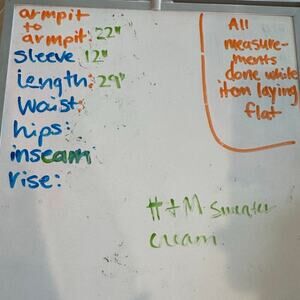 armpit
to
armpit: 22"
Sleeve 12"
Length: 29"
Waist
hips:
inseam
rise:
All
measure-
ments
done while
item laying
flat
H+M Sweater
cream